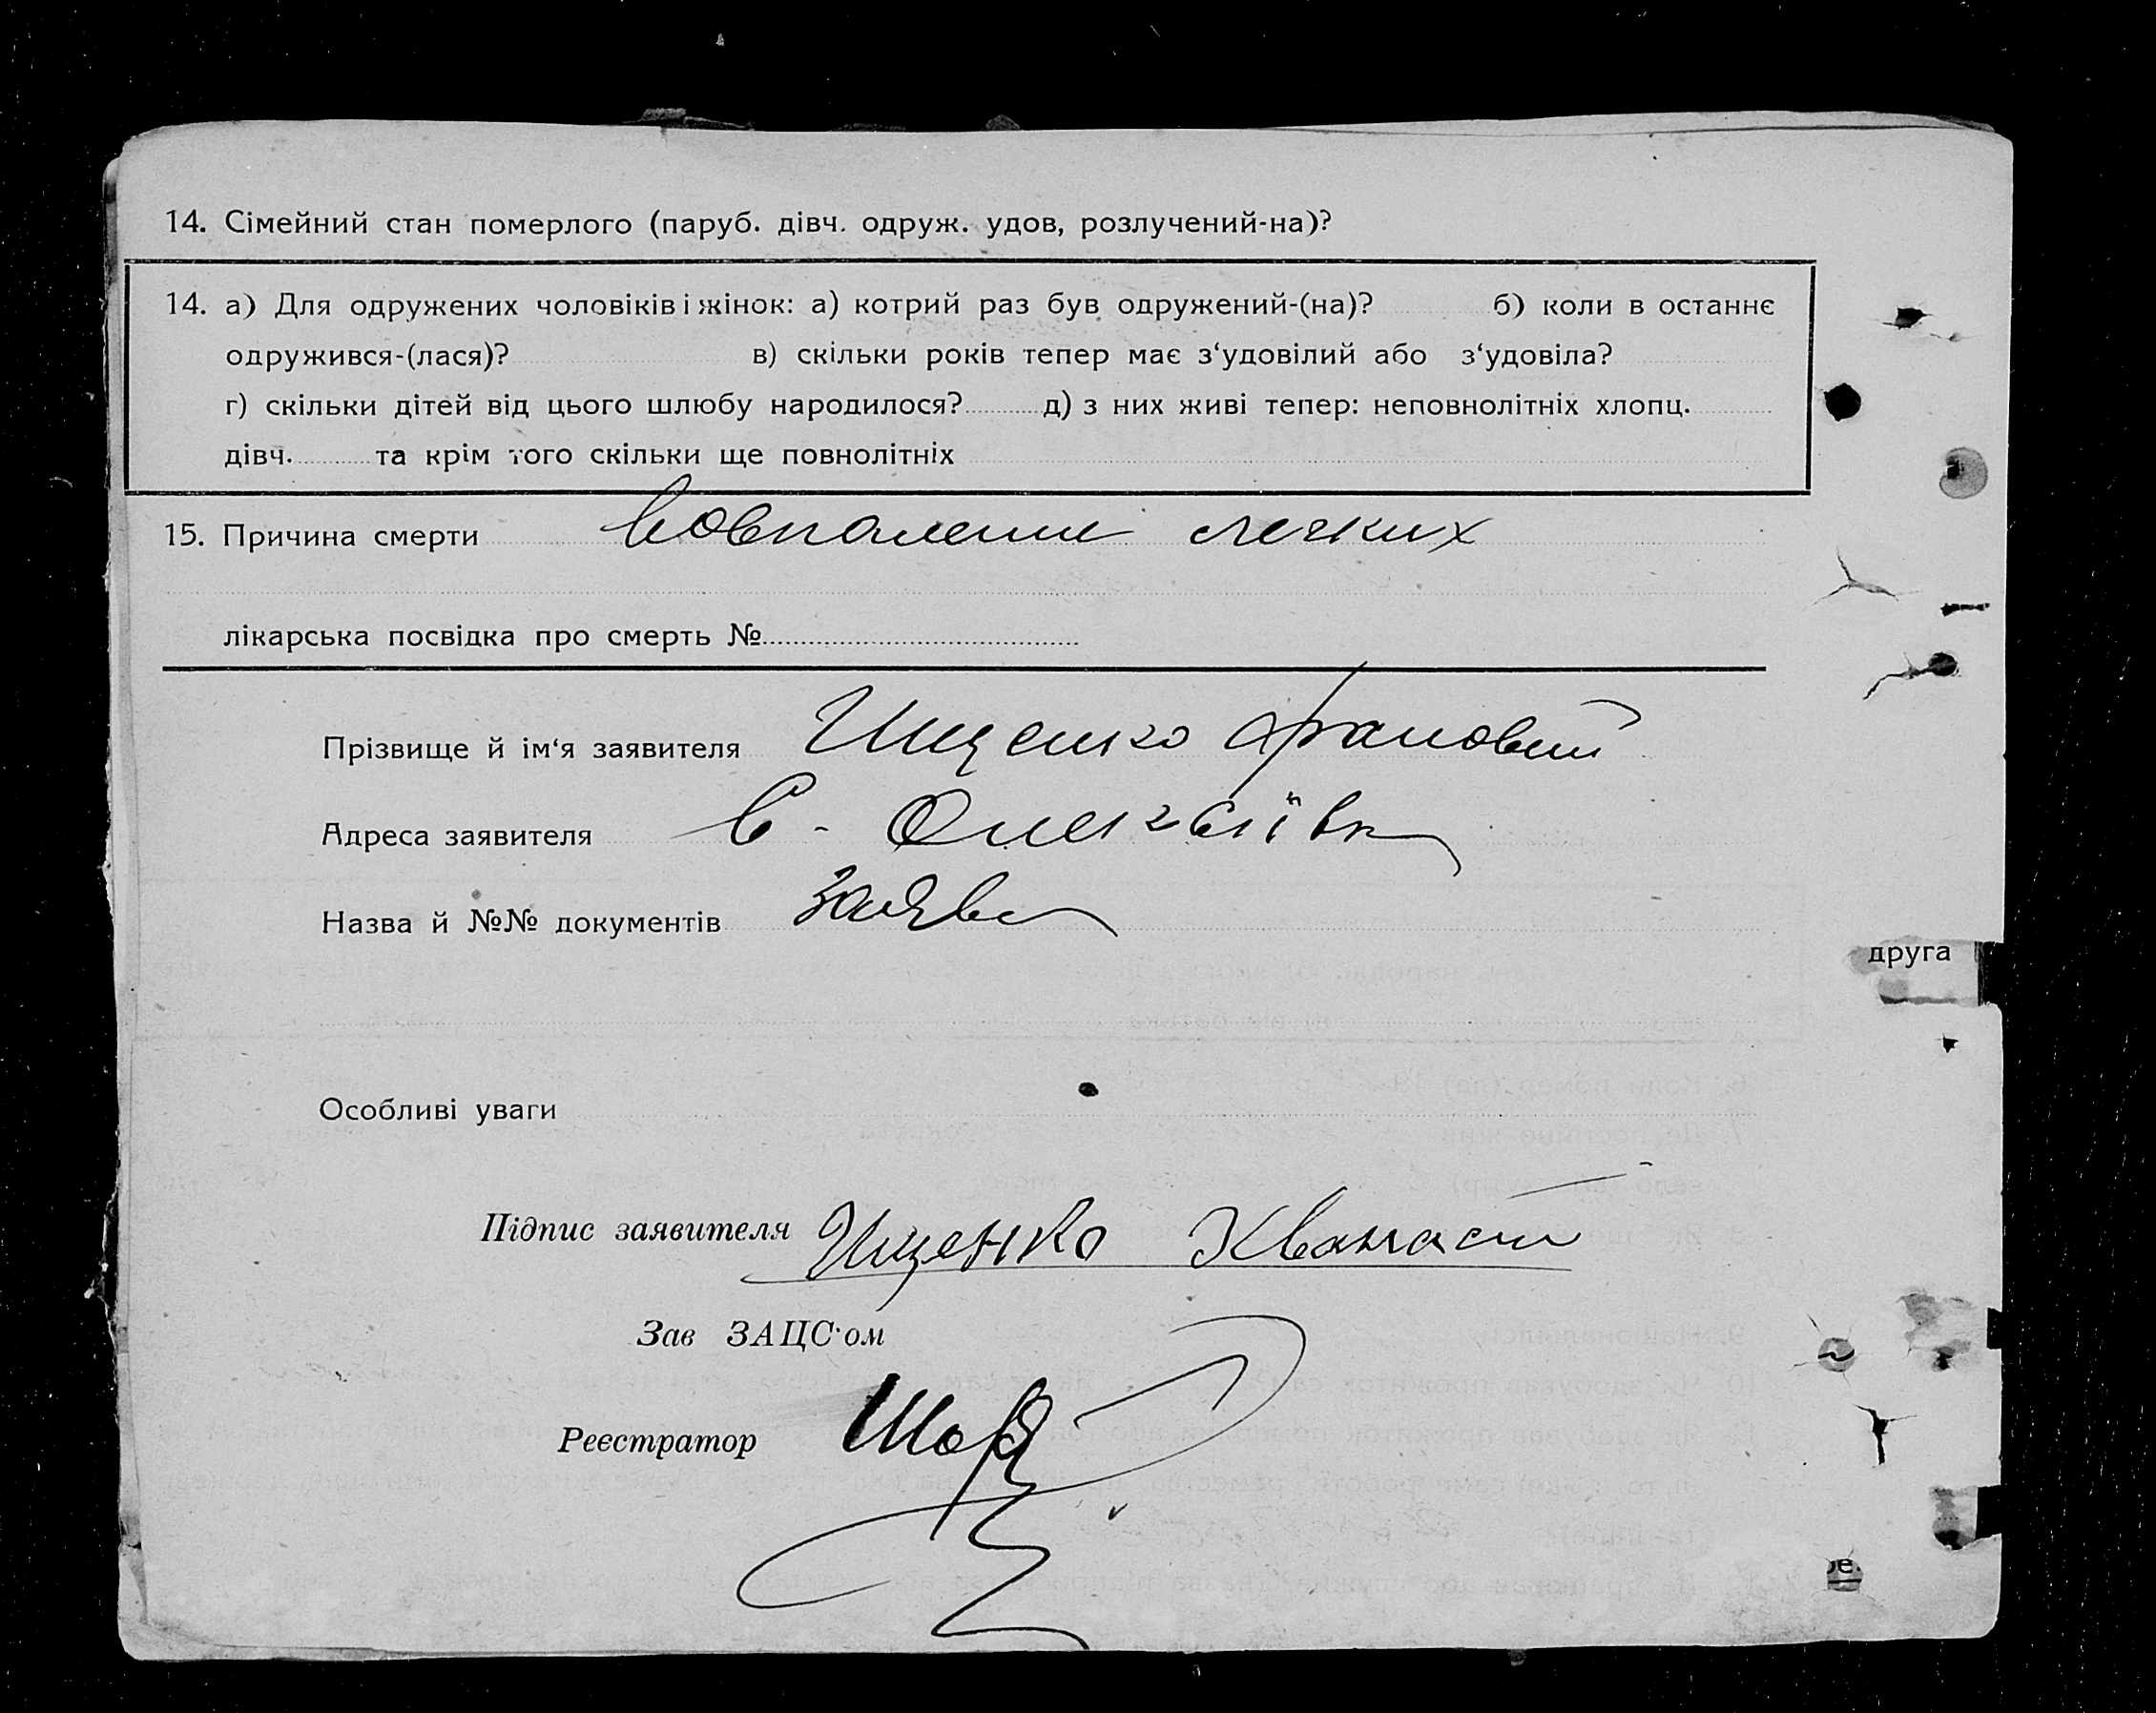 14. Сімейний стан померлого (паруб. дівч. одруж. удов, розлучений-на)?
14. а) Для одружених чоловіків і жінок: а) котрий раз був одружений-(на)? б) коли в останнє
одружився-(лася)? в) скільки років тепер має з‘удовілий або з‘удовіла?
г) скільки дітей від цього шлюбу народилося? д) з них живі тепер: неповнолітніх хлопц.
дівч. та крім того скільки ще повнолітніх
15. Причина смерти легких
лікарська посвідка про смерть №
Прізвище й ім‘я заявителя Ищенко
Адреса заявителя с. Олексіївка
Назва й №№ документів заява
друга
Особливі уваги
Підпис заявителя Ищенко
Зав ЗАЦС‘ом
Реєстратор